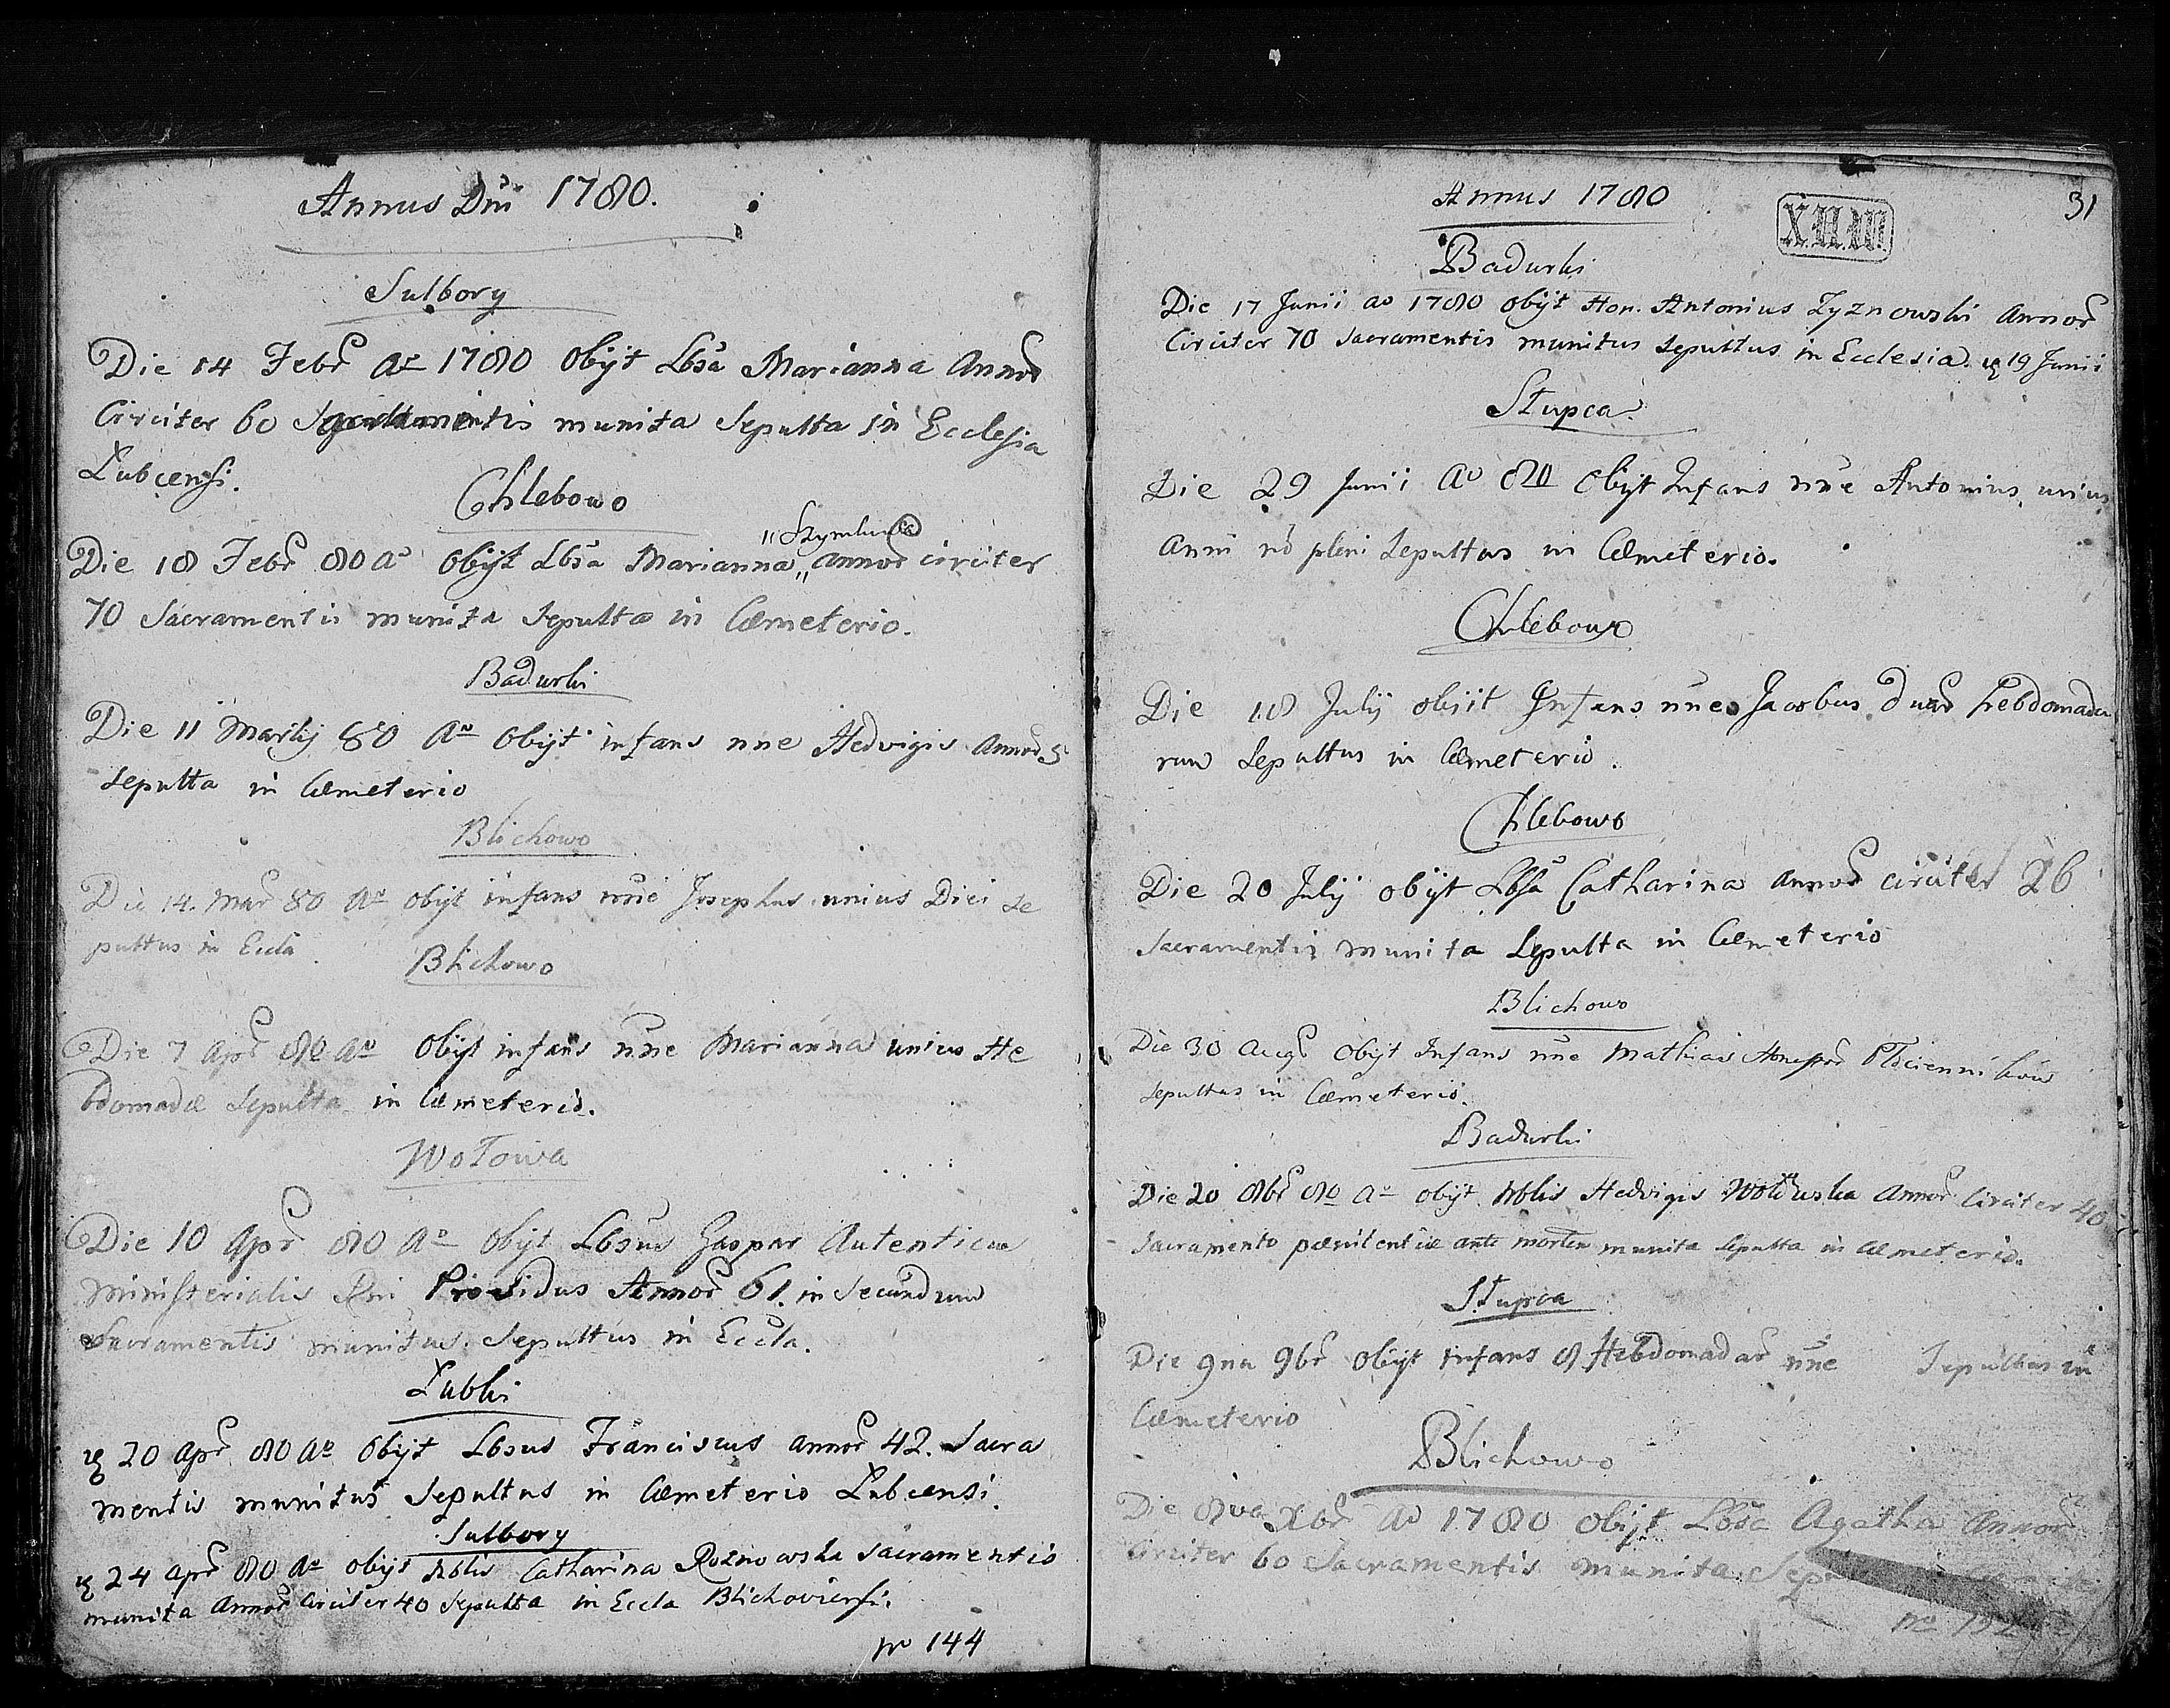 Annus Dni 1780.
Sulbory
Die 14 Febr Ao 1780 obijt Lbsa Marianna Annor
Circiter 60 Sacramentis munita Sepulta in Ecclesia
Łubcensi.
Chlebowo
"Szymkun
Die 18 Febr 80 ao obijt Lbsa Marianna " Annor circiter
70 Sacramentis munita Sepulta in Cæmeterio.
Badurki
Die 11 Martij 80 Ao obijt infans nne Hedvigis Annor 5
Sepulta in Cæmeterio
Blichowo
Die 14. Mar 80 Ao obijt infans nne Josephus unius Diei se
pultus in Eccla.
Blichowo
Die 7 Apr 80 Ao obijt infans nne Marianna unius He
bdomadæ Sepulta in Cæmeterio.
Wołowa
Die 10 Apr 80 Ao obijt Lbsus Gaspar Autenticus
Ministerialis Rni Annor 61. in Secundum
Sacramentis munitus Sepultus in Eccla.
Łubki
20 Apr 80 Ao obijt Lbsus Franciscus annor 42. Sacra
mentis munitus Sepultus in Cæmeterio Łubcensi.
Sulbory
24 Apr 80 Ao obijt Nblis Catharina Roznowska Sacramentis
munita Annor Circiter 40 Sepulta in Eccla Blichoviensi.
no 144
Annus 1780
X.II.III.
31
Badurki
Die 17 Junii ao 1780 obijt Hon. Antonius Zyznowski Annor
Circiter 70 Sacramentis munitus Sepultus in Ecclesia. 19 Junii
Słupca
Die 29 Junii Ao 80 obijt Infans nne Antonius unius
Anni no pleni Sepultus in Cæmeterio.
Chlebowo
Die 18 Julij obijt Infans nne Jacobus duar hebdomada
rum Sepultus in Cæmeterio.
Chlebowo
Die 20 Julij obijt Lbsa Catharina annor circiter 26
Sacramentis munita Sepulta in Cæmeterio
Blichowo
Die 30 Aug obijt Infans nne Mathias Honestor
Sepultus in Cæmeterio.
Badurki
Die 20 8br 80 Ao obijt Nblis Hedvigis Annor Circiter 40
Sacramento pænitentiæ ante mortem munita Sepulta in Cæmeterio.
Słupca
Die 9na 9br obijt infans 8 Hebdomadar nne Sepultus in
Cæmeterio
Blichowo
Die 8va Xbr Ao 1780 obijt Lbsa Agatha Annor
Circiter 60 Sacramentis munita